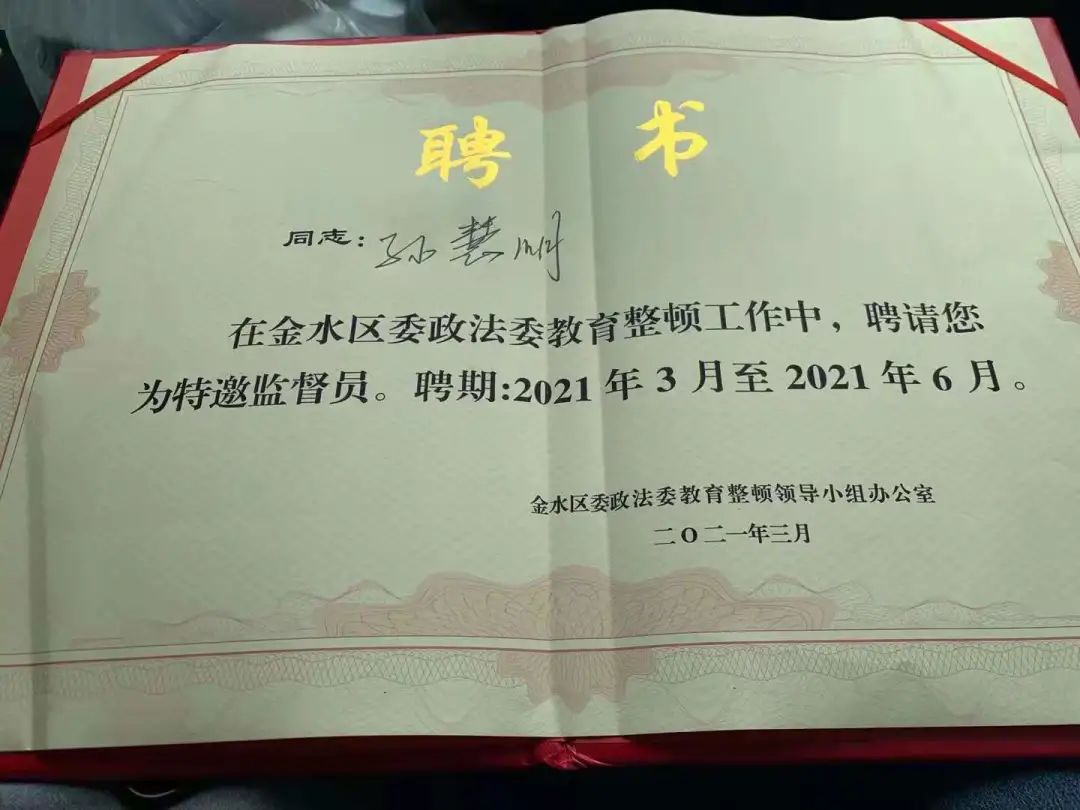 聘书
同志：孙慧明
在金水区委政法委教育整顿工作中，聘请您
为特邀监督员。聘期:2021年3月至2021年6月。
金水区委政法委教育整顿领导小组办公室
二〇二一年三月